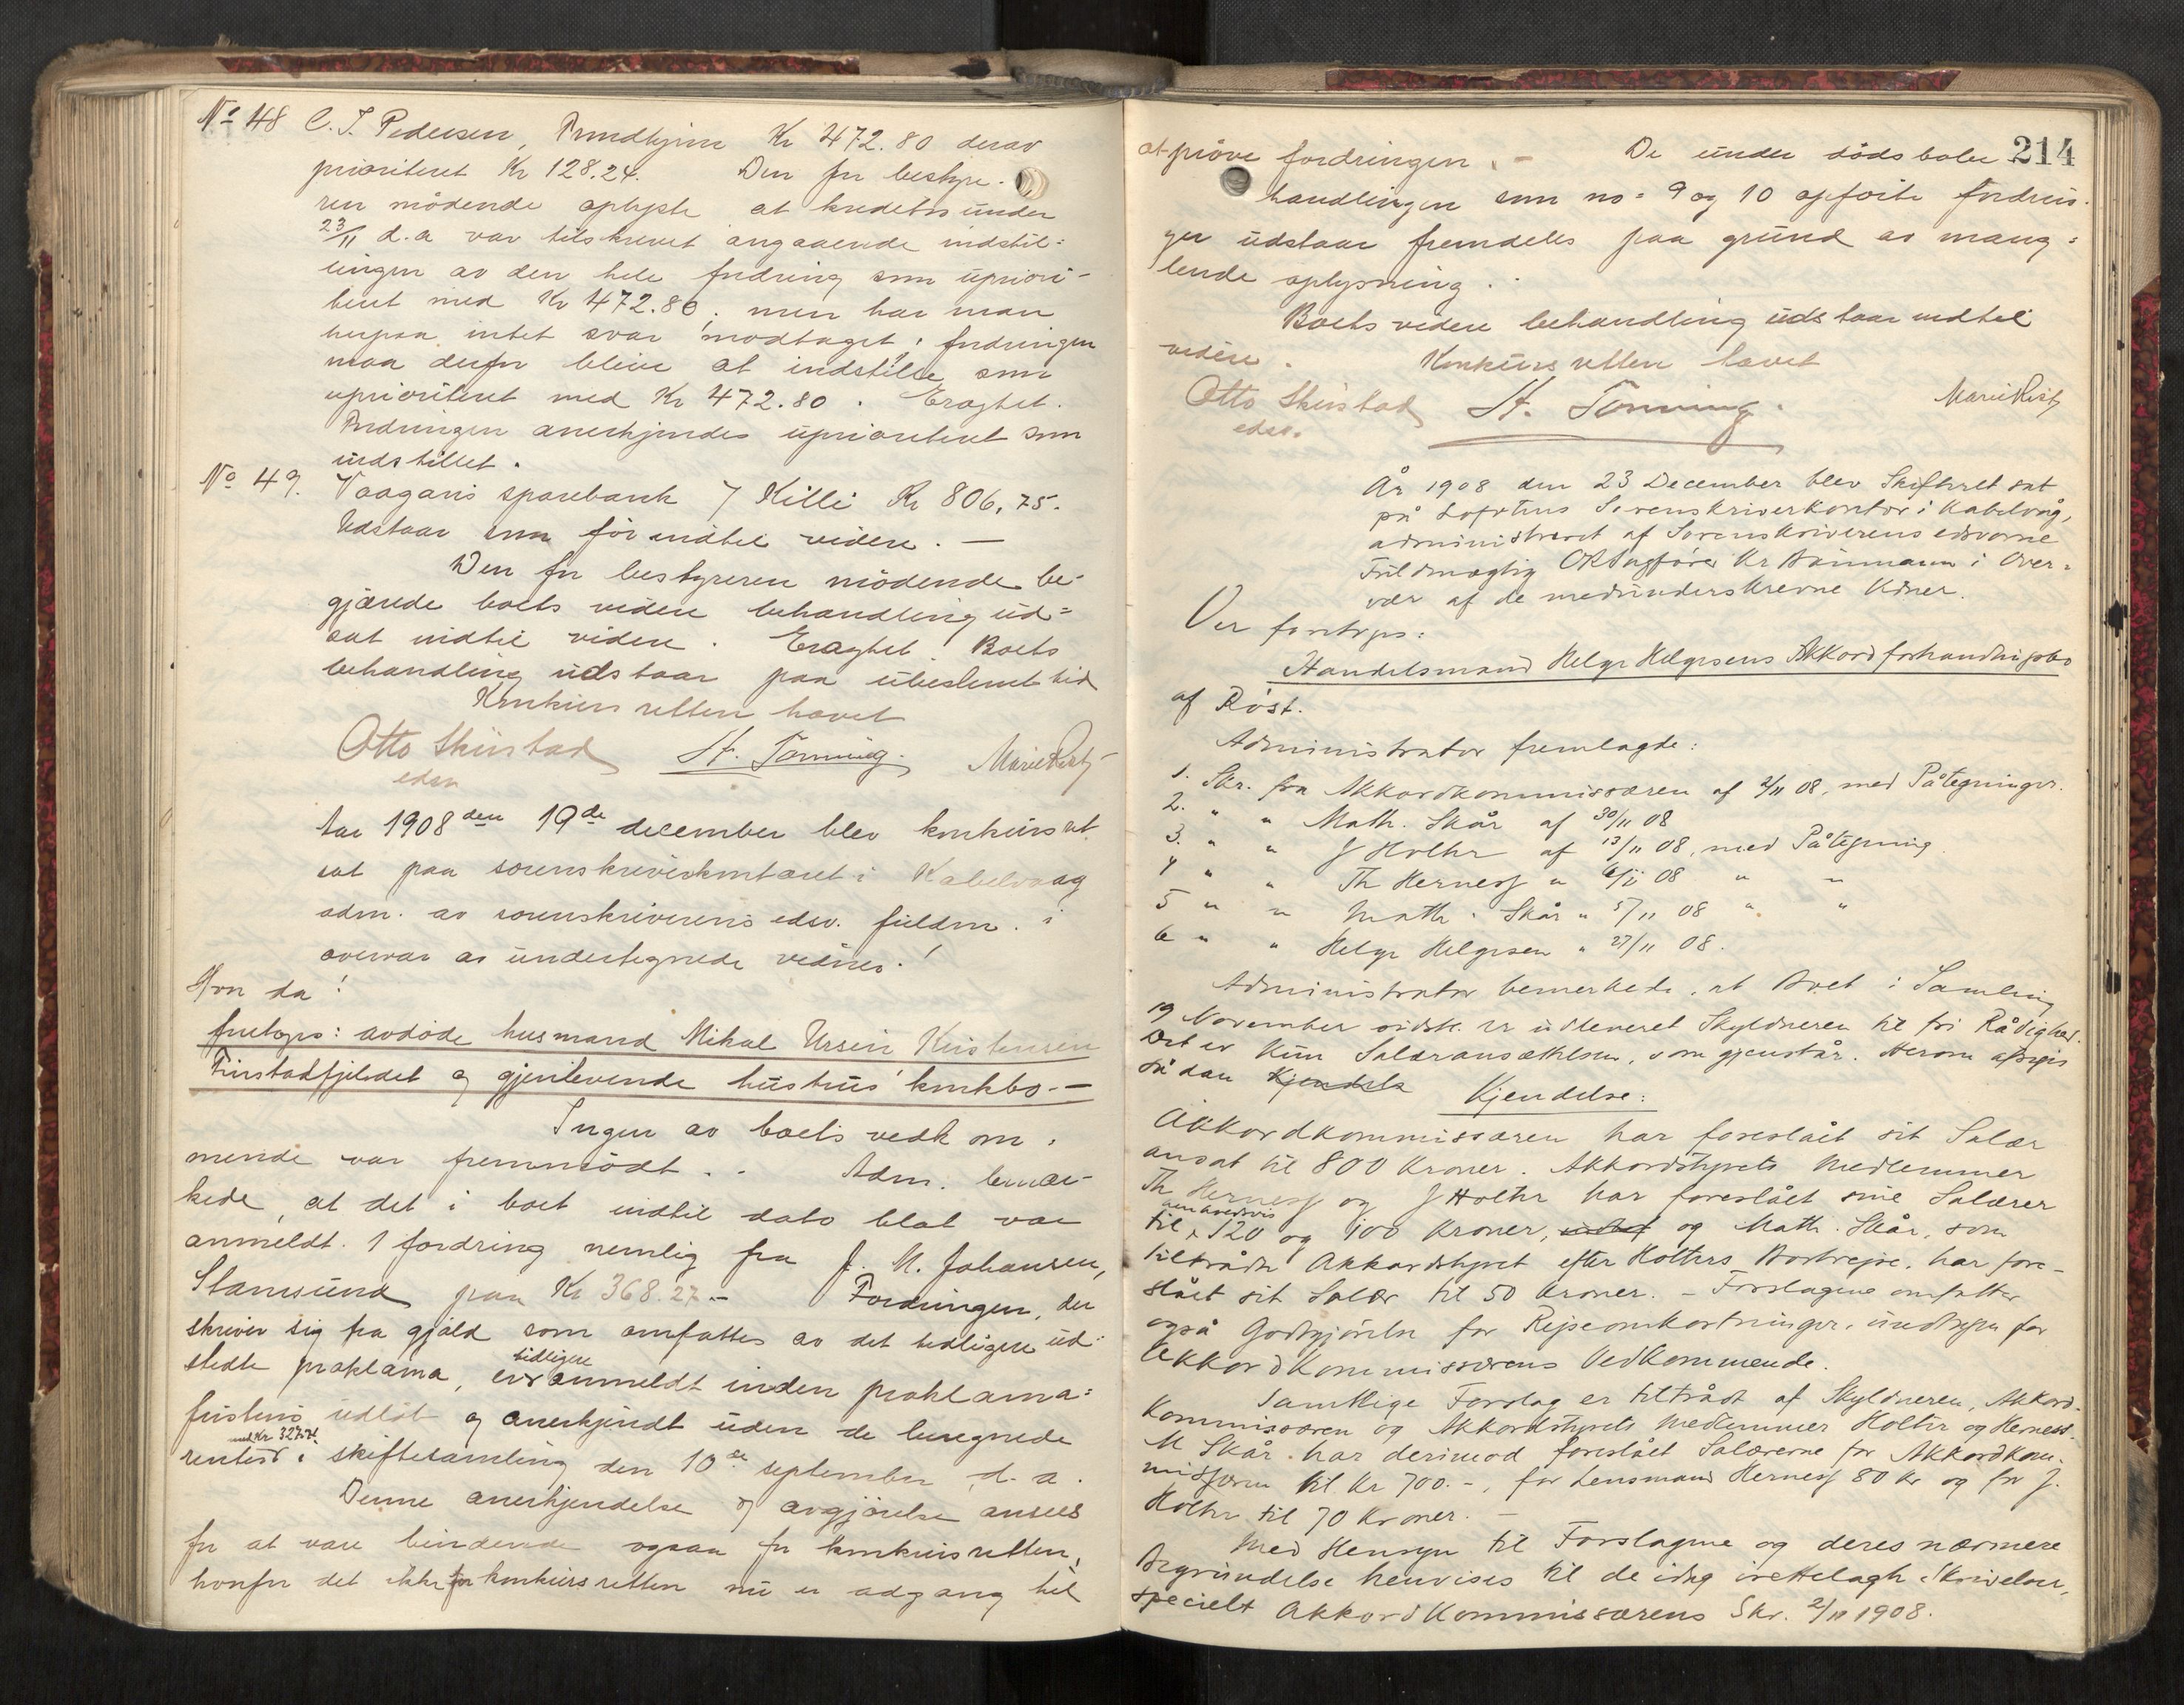 No 48 C. J. Pedersen, Trondhjem Kr 472.80 derav
prioriteret Kr 128.24. Den for besty-
ren mödende oplyste at kreditor under
23/11 d.a var tilskrevet angaaende indstil-
lingen av den hele fordring som upriori-
teret med Kr 472.80; men har man
herpaa intet svar modtaget; fordringen
maa derfor blive at indstille som
uprioriteret med Kr 472.80. Eragtet.
Fordringen anerkjendes uprioriteret som
indstillet.
No 49. Vaagans sparebank / Killi Kr 806,75.
Udstaar som för indtil videre. —
Den for bestyreren mödende be-
gjærede boets videre behandling ud-
sat indtil videre. Eragtet. Boets
behandling udstaar paa ubestemt tid
Konkursretten hævet
Otto Skustad St. Tønning. Marie
edsv
Aar 1908 den 19de december blev konkursret
sat paa sorenskriverkontoret i Kabelvaag
adm. av sorenskriverens edsv. fuldm. i
overvær av undertegnede vidner!
Hvor da!
foretoges: avdöde husmand Mikal Ursin Kristensen
Finstadfjeldet og gjenlevende hustrus konkbo. —
Ingen av boets vedkom-
mende var fremmödt. - Adm. bemær-
kede, at det i boet indtil dato blot var
anmeldt 1 fordring nemlig fra J. M. Johansen,
Stamsund paa Kr 368.27. - Fordringen, der
skriver sig fra gjæld som omfattes av det tidligere ud-
stedte proklama, er tidligere anmeldt inden proklama-
fristens udlöb og anerkjendt uden de beregnede
renter med Kr 327.74 i skiftesamling den 10de september d.a.
Denne anerkjendelse og avgjörelse ansees
for at være bindende ogsaa for konkursretten,
hvorfor det ikke for konkursretten nu er adgang til
214
at pröve fordringen. - De under dödsbobe-
handlingen som no = 9 og 10 opförte fordrin-
ger udstaar fremdeles paa grund av mang-
lende oplysning.
Boets videre behandling udstaar indtil
videre. Konkursretten hævet
Otto Skustad St. Tønning. Marie
edsv.
År 1908 den 23 December blev Skifteret sat
på Lofotens Sorenskriverkontor i Kabelvåg,
administreret af Sorenskriverens edsvorne
Fuldmægtig ORSagfører Kr i Over-
vær af de medunderskrevne Vidner.
Der foretoges:
Handelsmand Helge Helgesens Akkordforhandlingsbo
af Röst.
Administrator fremlagde:
1. Skr. fra Akkordkommissæren af 2/11 08, med Påtegninger.
2. " " Math. Skår af 30/11 08
3. " " J Holthe af 13/11 08, med Påtegning
4 " " Th Herness " 6/11 08 " "
5 " " Math. Skår " 5/11 08 " "
6 " " Helge Helgesen " 27/11 08.
Administrator bemerkede, at Boet i Samling
19 November sidstl. er udleveret Skyldneren til fri Rådighed.
Det er kun Salæransættelsen, som gjenstår. Herom afsiges
sådan Kjendelse
Kjendelse:
Akkordkommissæren har foreslået sit Salær
ansat til 800 Kroner. Akkordstyrets Medlemmer
Th Herness og J Holthe har foreslået sine Salærer
til henholdsvis 120 og 100 Kroner, og Math. Skår, som
tiltrådte Akkordstyret efter Holthes Bortrejse, har fore-
slået sit Salær til 50 Kroner. - Forslagene omfatter
også Godtgjörelse for Rejseomkostninger, undtagen for
Akkordkommissærens Vedkommende.
Samtlige Forslag er tiltrådt af Skyldneren, Akkord-
kommissæren og Akkordstyrets Medlemmer Holthe og Herness.
M Skår har derimod foreslået Salærerne for Akkordkom-
missæren til Kr 700.-, for Lensmand Herness 80 Kr og for J.
Holthe til 70 Kroner. -
Med Hensyn til Forslagene og deres nærmere
Begrundelse henvises til de idag irettelagte Skrivelser,
specielt Akkordkommissærens Skr. 2/11 1908.